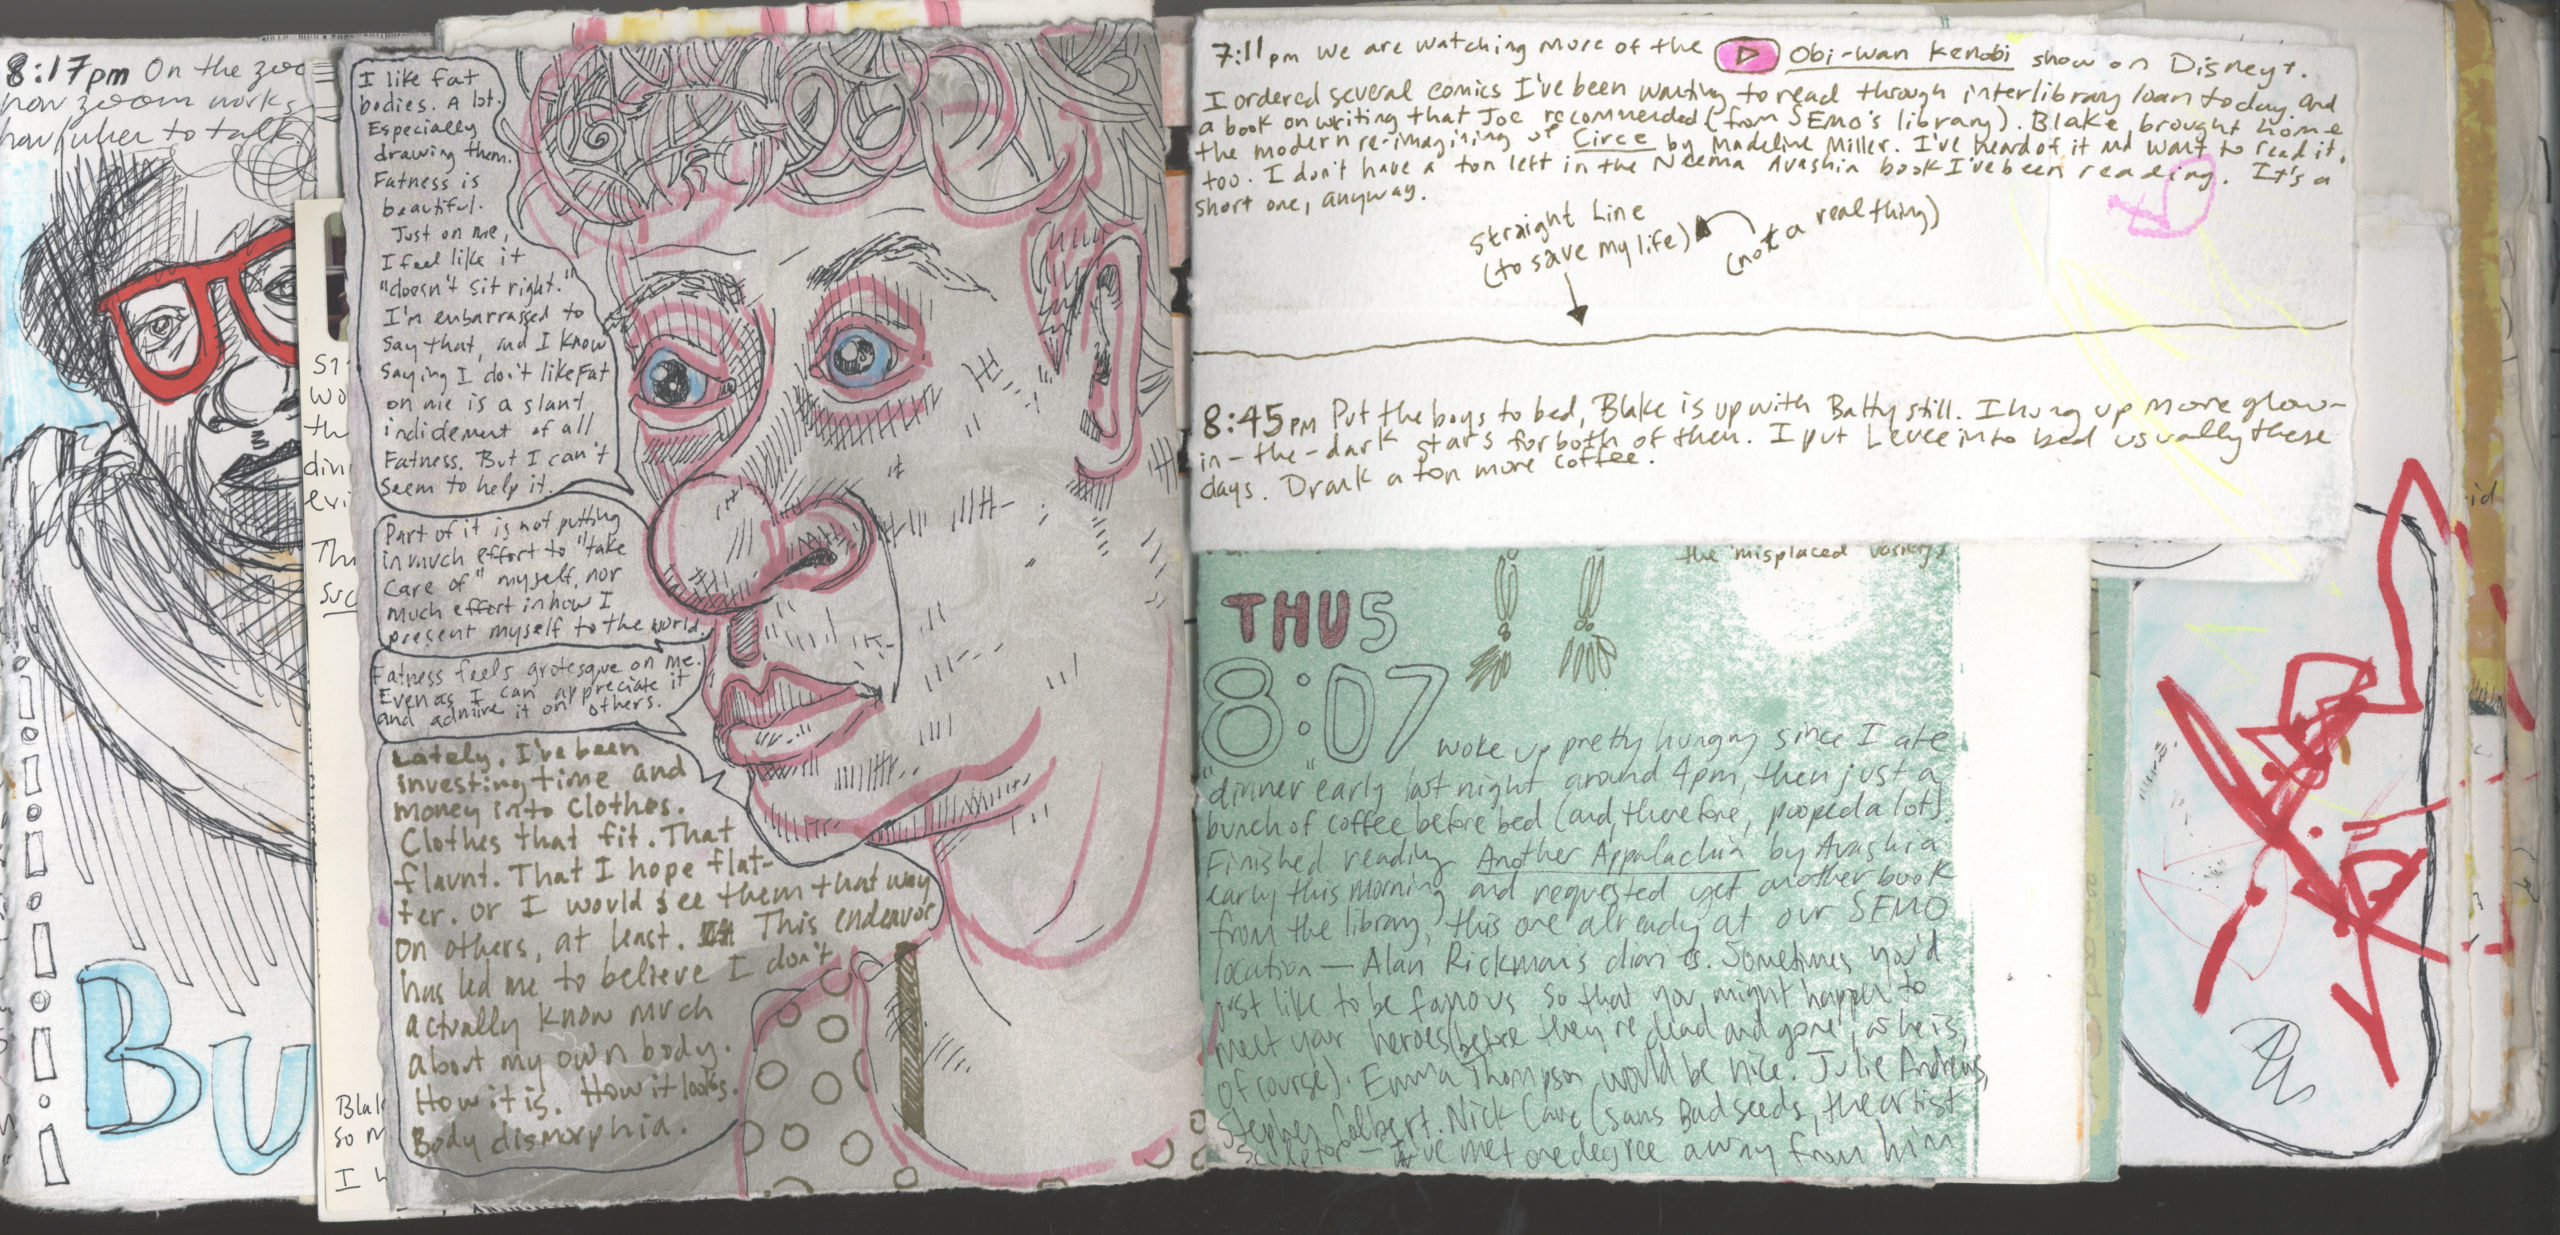 8:17pm On the zoo
how zoom works,
to talk
Bu
wo
th
din
evi
Th
suc
Blak
so m
I
I like fat
bodies. A lot.
Especially
drawing them.
Fatness is
beautiful.
Just on me,
I feel like it
"doesn't sit right."
I'm embarrassed to
say that, and I know
saying I don't like fat
on me is a slant
indidement of all
Fatness. But I can't
seem to help it.
Part of it is not putting
in much effort to "take
care of" myself, nor
much effort in how I
present myself to the world.
Fatness feels grotesque on me.
Even as I can appreciate it
and admire it on others.
Lately, I've been
investing time and
money into clothes.
Clothes that fit. That
flaunt. That I hope flat-
ter. or I would see them that way
on others, at least. This endeavor
has led me to believe I don't
actually know much
about my own body.
How it is. How it looks.
Body dismorphia.
7:11pm we are watching more of the Obi-wan Kenobi show on Disney+.
I ordered several comics I've been wanting to read through interlibrary loan today. And
a book on writing that Joe recommended (from SEMO's library). Blake brought home
the modern re-imagining of Circe by Madeline Miller. I've heard of it and want to read it,
too. I don't have a ton left in the Neema Avashia book I've been reading. It's a
short one, anyway.
straight Line
(to save my life)
(not a real thing)
8:45pm Put the boys to bed, Blake is up with Batty still. I hung up more glow-
in-the-dark stars for both of them. I put Levee into bed usually these
days. Drank a ton more coffee.
the misplaced variety
THU 5
8:07 woke up pretty hungry since I ate
"dinner" early last night around 4pm, then just a
bunch of coffee before bed (and, therefore, pooped a lot)
Finished reading Another Appalachia by Avashia
early this morning and requested yet another book
from the library, this one already at our SEMO
location — Alan Rickman's diaries. Sometimes you'd
just like to be famous so that you might happen to
meet your heroes (before they're dead and gone, as he is,
of course). Emma Thompson would be nice. Julie Andrews,
Stephen Colbert. Nick Cave (sans Bad seeds, the artist
sculptor — I've met one degree away from him